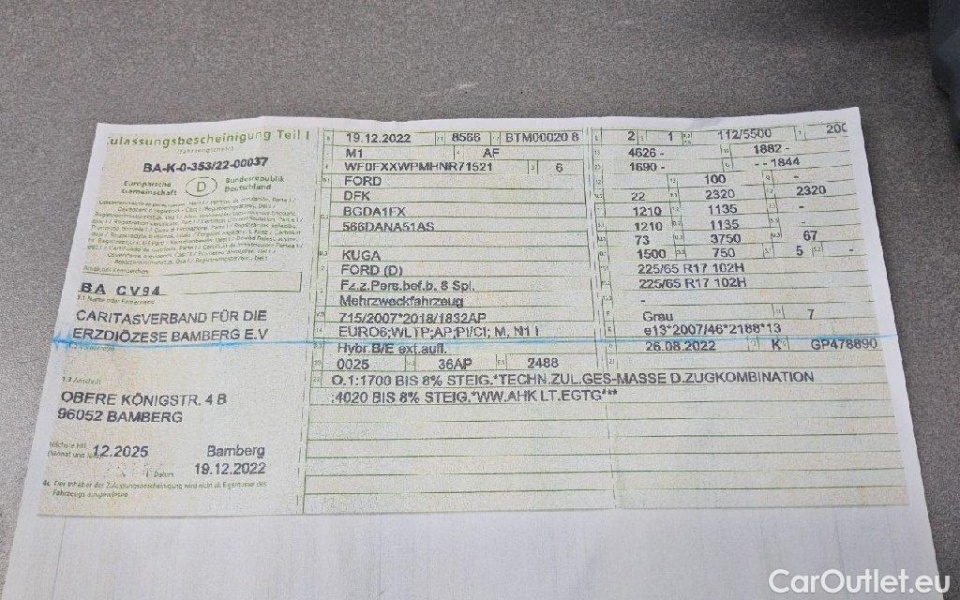 Zulassungsbescheinigung Teil I
(Fahrzeugschein)
BA-K-0-353/22-00037
Europäische Gemeinschaft
D
Bundesrepublik Deutschland
Amtliches Kennzeichen
BA CV94
CARITASVERBAND FÜR DIE
ERZDIÖZESE BAMBERG E.V
Anschrift
OBERE KÖNIGSTR. 4 B
96052 BAMBERG
12.2025
Bamberg
Datum
19.12.2022
4c. Der Inhaber der Zulassungsbescheinigung wird nicht als Eigentümer des
Fahrzeugs ausgewiesen
19.12.2022 8566 BTM00020 8
M1 AF
WF0FXXWPMHNR71521 6
FORD
DFK
BGDA1FX
566DANA51AS
KUGA
FORD (D)
Fz.z.Pers.bef.b. 8 Spl.
Mehrzweckfahrzeug
715/2007*2018/1832AP
EURO6;WLTP;AP;PI/CI; M, N1 I
Hybr.B/E ext.aufl.
0025 36AP 2488
2 1 112/5500 200
4626 - 1882 -
1690 - - - 1844
100 -
22 2320 2320
1210 1135 -
1210 1135 -
73 3750 67
1500 750 5 -
225/65 R17 102H
225/65 R17 102H
-
Grau 7
e13*2007/46*2188*13
26.08.2022 K GP478890
O.1:1700 BIS 8% STEIG.*TECHN.ZUL.GES-MASSE D.ZUGKOMBINATION
:4020 BIS 8% STEIG.*WW.AHK LT.EGTG***
CarOutlet.eu